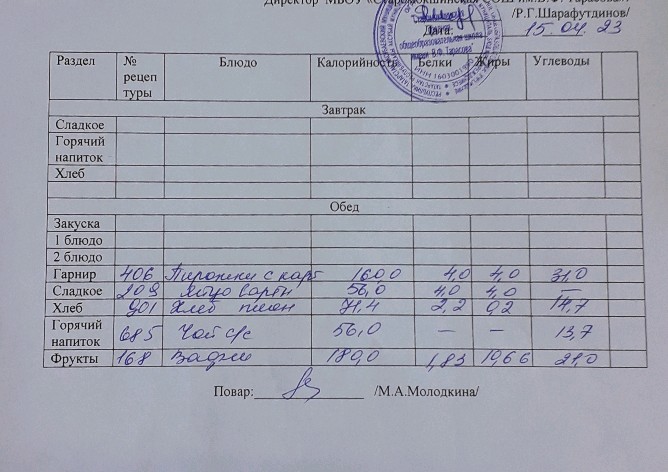 Директор МБОУ «Старомокшинская СОШ им.В.Ф. Тарасова»
/Р.Г.Шарафутдинов/
Дата: 15.04.23
общеобразовательная школа
Раздел № рецептуры Блюдо Калорийность Белки Жиры Углеводы
Завтрак
Сладкое
Горячий напиток
Хлеб
Обед
Закуска
1 блюдо
2 блюдо
Гарнир 406 Пирожки с карт 160,0 4,0 4,0 31,0
Сладкое 209 Яйцо варён 56,0 4,0 4,0 —
Хлеб 901 Хлеб пшен 71,4 2,2 0,2 14,7
Горячий напиток 685 Чай с/с 56,0 — — 13,7
Фрукты 168 Вафли 180,0 1,83 10,66 21,0
Повар: /М.А.Молодкина/